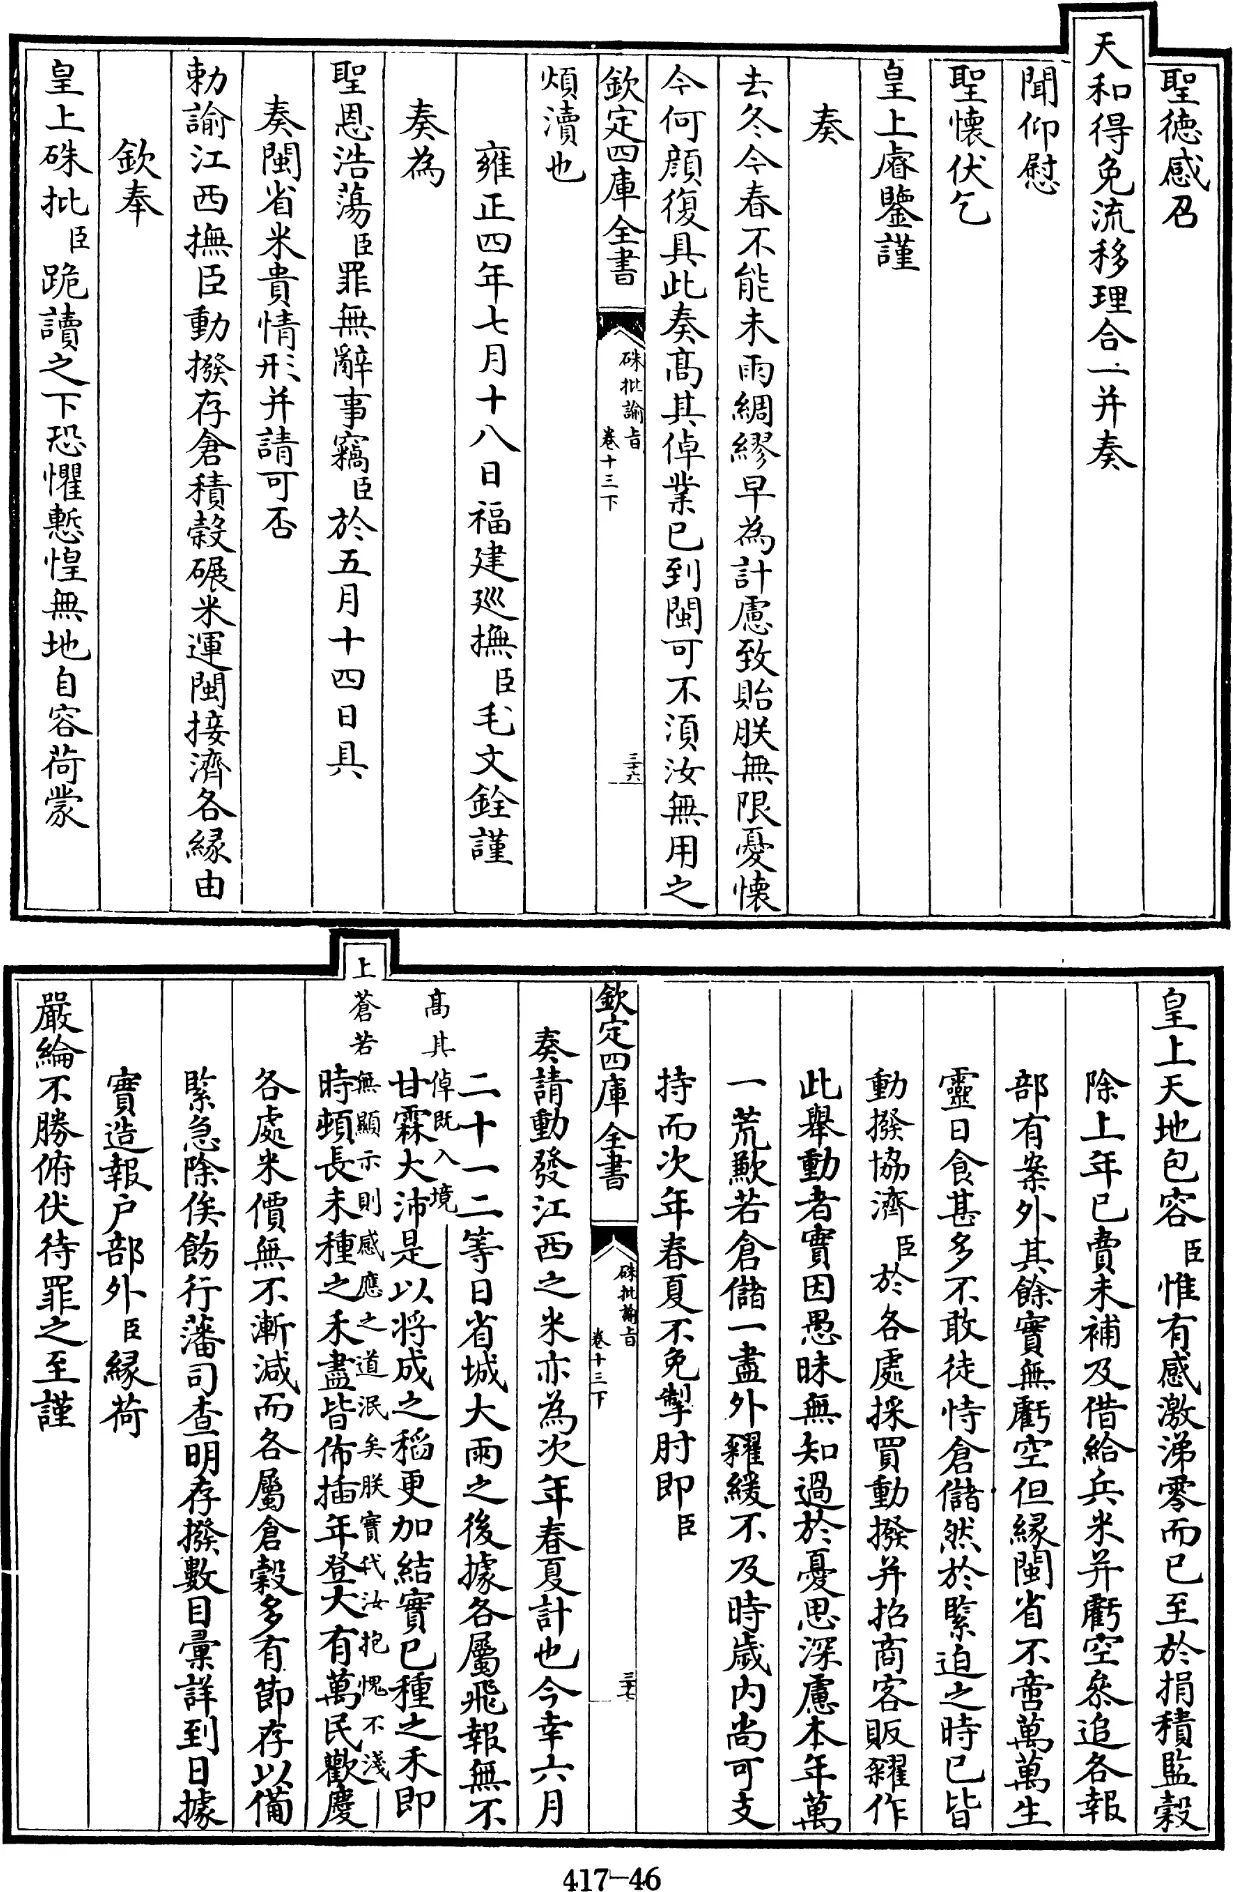 聖徳感召
天和得免流移理合一并奏
聞仰慰
聖懷伏乞
皇上睿鑒謹
奏
去冬今春不能未雨綢繆早為計慮致貽朕無限憂懷
今何顔復具此奏高其倬業已到閩可不須汝無用之
欽定四庫全書
硃批諭旨
卷十三下
三十六
煩瀆也
雍正四年七月十八日福建廵撫臣毛文銓謹
奏為
聖恩浩蕩臣罪無辭事竊臣於五月十四日具
奏閩省米貴情形并請可否
勅諭江西撫臣動撥存倉積榖碾米運閩接濟各縁由
欽奉
皇上硃批臣跪讀之下恐懼慙惶無地自容荷蒙
皇上天地包容臣惟有感激涕零而已至於捐積監穀
除上年已賣未補及借給兵米并虧空叅追各報
部有案外其餘實無虧空但縁閩省不啻萬萬生
靈日食甚多不敢徒恃倉儲然於緊迫之時已皆
動撥協濟臣於各處採買動撥并招商客販糶作
此舉動者實因愚昧無知過於憂思深慮本年萬
一荒歉若倉儲一盡外糴緩不及時歲内尚可支
持而次年春夏不免掣肘即臣
欽定四庫全書
硃批諭旨
卷十三下
三十七
奏請動發江西之米亦為次年春夏計也今幸六月
二十一二等日省城大雨之後據各屬飛報無不
高其倬既入境
甘霖大沛是以将成之稻更加結實已種之禾即
上蒼若無顯示則感應之道泯矣朕實代汝抱愧不淺
時頓長未種之禾盡皆佈插年登大有萬民歡慶
各處米價無不漸減而各屬倉穀多有節存以備
緊急除俟飭行藩司查明存撥數目彚詳到日據
實造報户部外臣縁荷
嚴綸不勝俯伏待罪之至謹
417-46